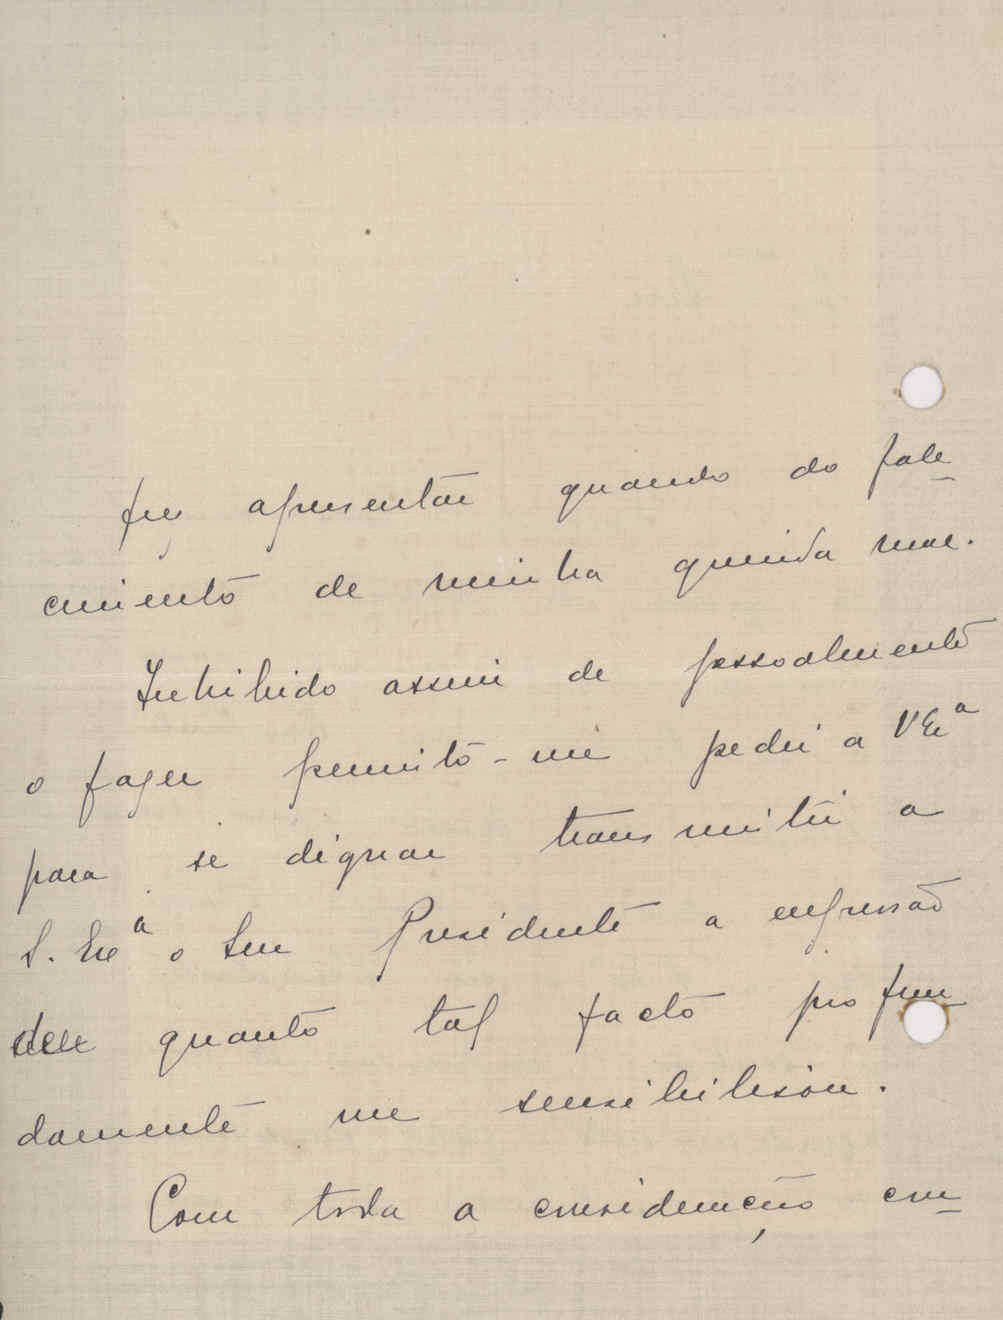 fez apresentar quando do fale-
cimento de minha querida mãe.
Inhibido assim de pessoalmente
o fazer permito-me pedir a V Exª
para se dignar transmitir a
S. Exª o Snr Presidente a expressão
de quanto tal facto profun-
damente me sensibilisou.
Com toda a consideração em-